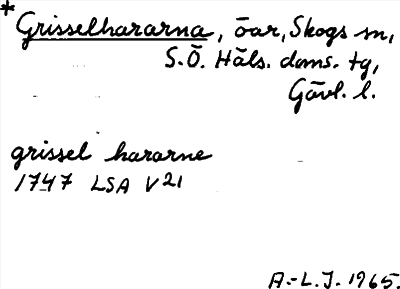 *Grisselhararna, öar, Skogs sn,
S.Ö. Häls. doms. tg,
Gävl. l.
grissel hararne
1747 LSA V21
A.-L.J. 1965.